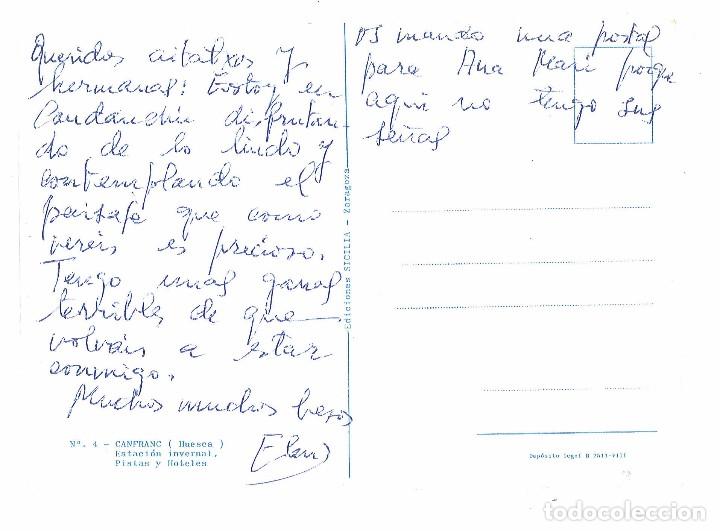 Queridos aitatxos y
hermanas: Estoy en
Candanchú disfrutan-
do de lo lindo y
contemplando el
paisaje que como
veréis es precioso.
Tengo unas ganas
terribles de que
volváis a estar
conmigo.
Muchos muchos besos
Nº. 4 - CANFRANC ( Huesca )
Estación invernal,
Pistas y Hoteles
Ediciones SICILIA - Zaragoza
os mando una postal
para Ana Mari porque
aquí no tengo sus
señas
Depósito Legal B
todocoleccion